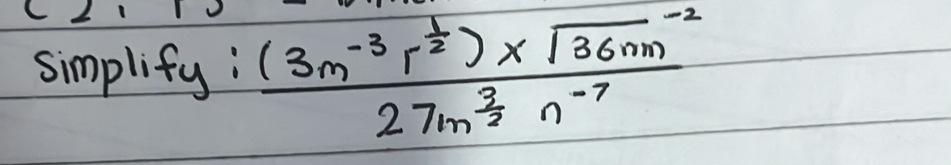 Simplify : (3m⁻³ r^½) × √36nm⁻²
27m^(3/2) n⁻⁷